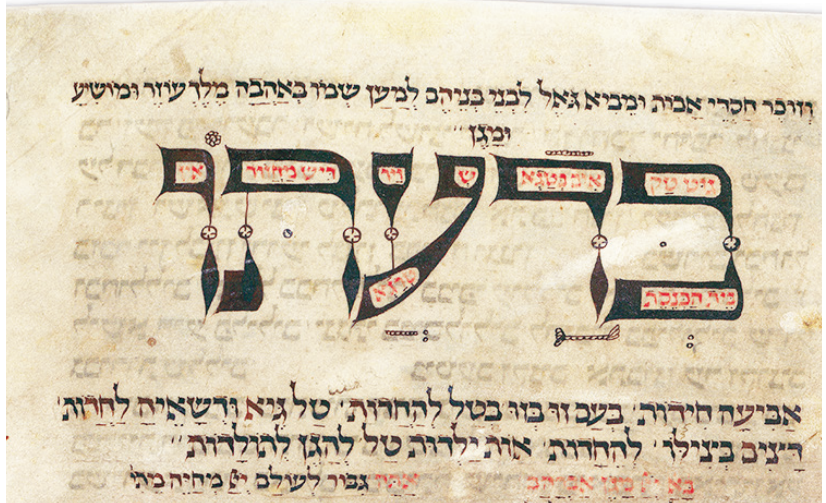 וזוכר חסדי אבות ומביא גאל לבני בניהם למען שמו באהבה מלך עוזר ומושיע
ומגן
בדעתו
גוט טק אים בטגא ש ויר דיש מחזור אין
בית הכנסת טרגא
אביעה חידות בעם זו בזו בטל להחדות טל גיא ודשאיה לחדות
דצים בצילו להחדות אות ילדות טל להגן לתולדות
בא״י מגן אברהם אתה גבור לעולם יי מחיה מתי